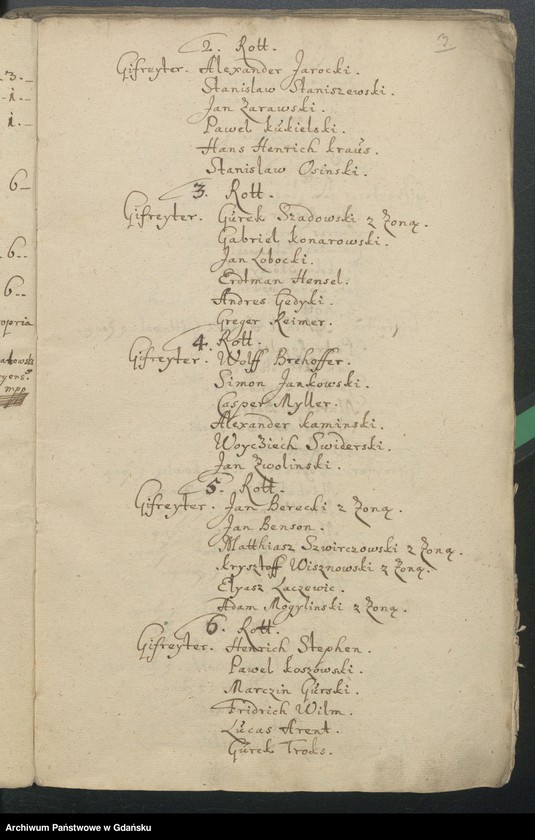 3
2. Rott.
Gifreyter. Alexander Jarocki.
Stanislaw Staniszewski.
Jan Zarawski.
Pawel kukielski.
Hans Henrich kraus.
Stanislaw Osinski.
3. Rott.
Gifreyter. Gurek Szadowski z Zoną.
Gabriel konarowski.
Jan Lobocki.
Erdtman Hensel.
Andres Gedyki.
Greger Reimer.
4. Rott.
Gifreyter. Wolff Brehoffer.
Simon Jankowski.
Casper Myller.
Alexander kaminski.
Woycziech Swiderski.
Jan Zwolinski.
5. Rott.
Gifreyter. Jan Berecki z Zoną.
Jan Benson.
Matthiasz Szwirczowski z Zoną.
krysztoff Wisznowski z Zoną.
Elyasz Laczewic.
Adam Mogylinski z Zoną.
6. Rott.
Gifreyter. Henrich Stephen.
Pawel koszowski.
Marczin Gurski.
Fridrich Wilm.
Lucas Arent.
Gurek Troks.
3.
1.
1.
6
6
6
opria
mpp
Archiwum Państwowe w Gdańsku